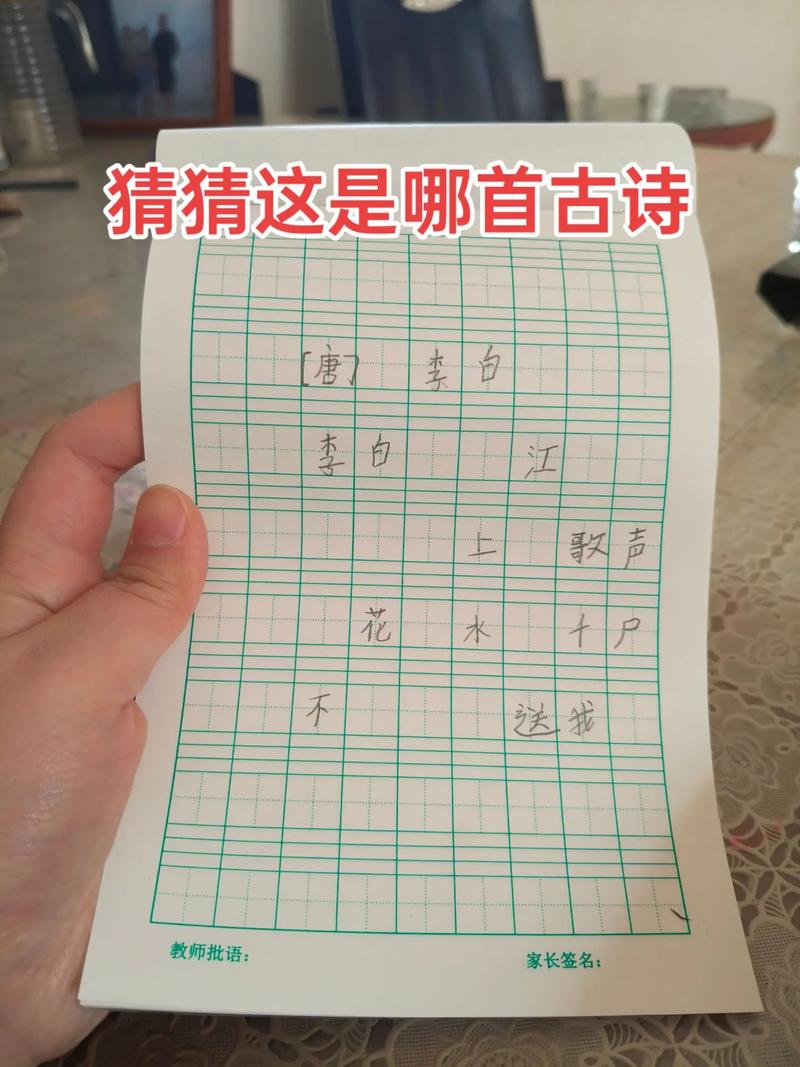 猜猜这是哪首古诗
[唐] 李白
李白 江
上 歌声
花 水 千尸
不 送我
教师批语: 家长签名: